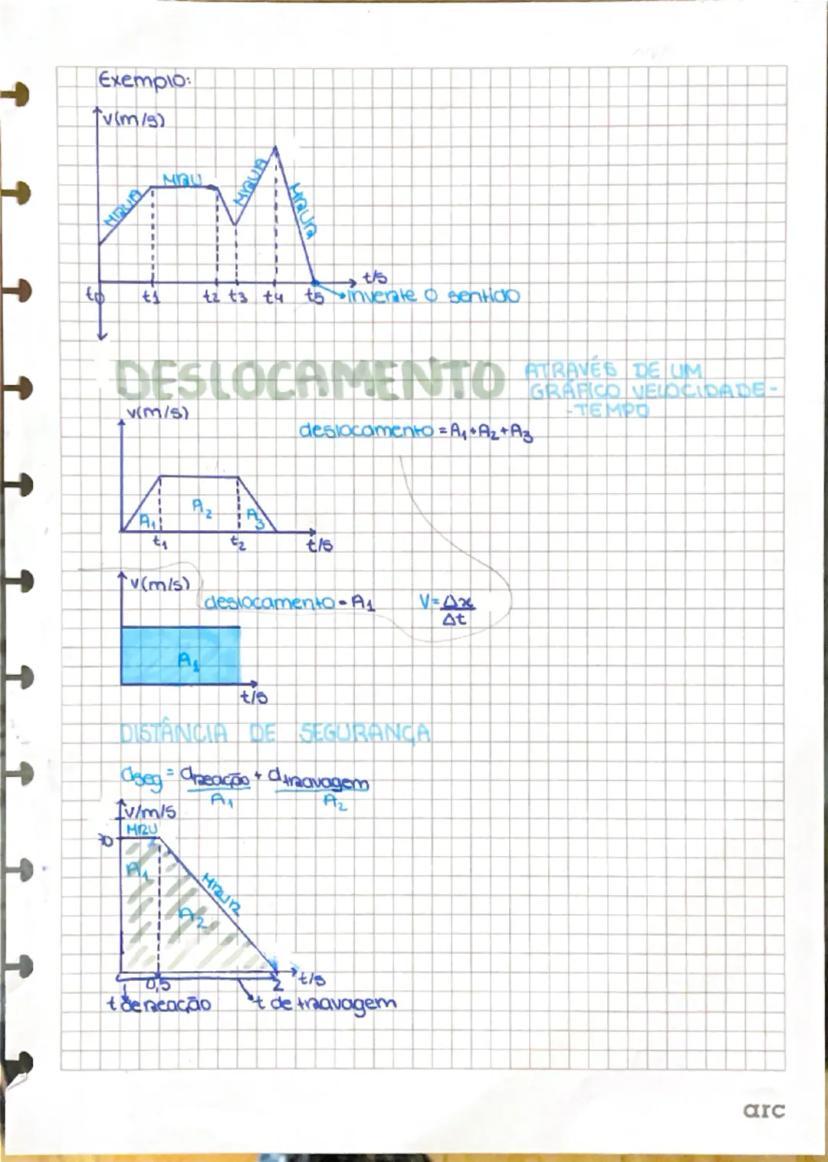 Exemplo:
v(m/s)
MRUA MRU MRUA MRUR
t0 t1 t2 t3 t4 t5 t/s
inverte o sentido
DESLOCAMENTO ATRAVÉS DE UM
GRÁFICO VELOCIDADE-
-TEMPO
v(m/s)
deslocamento = A1+A2+A3
A1 A2 A3
t1 t2 t/s
v(m/s)
deslocamento = A1 V=Δx/Δt
A1
t/s
DISTÂNCIA DE SEGURANÇA
dseg = dreação + dtravagem
A1 A2
v/m/s
MRU
A1 MRUR
A2
0,5 2 t/s
t de reação t de travagem
arc